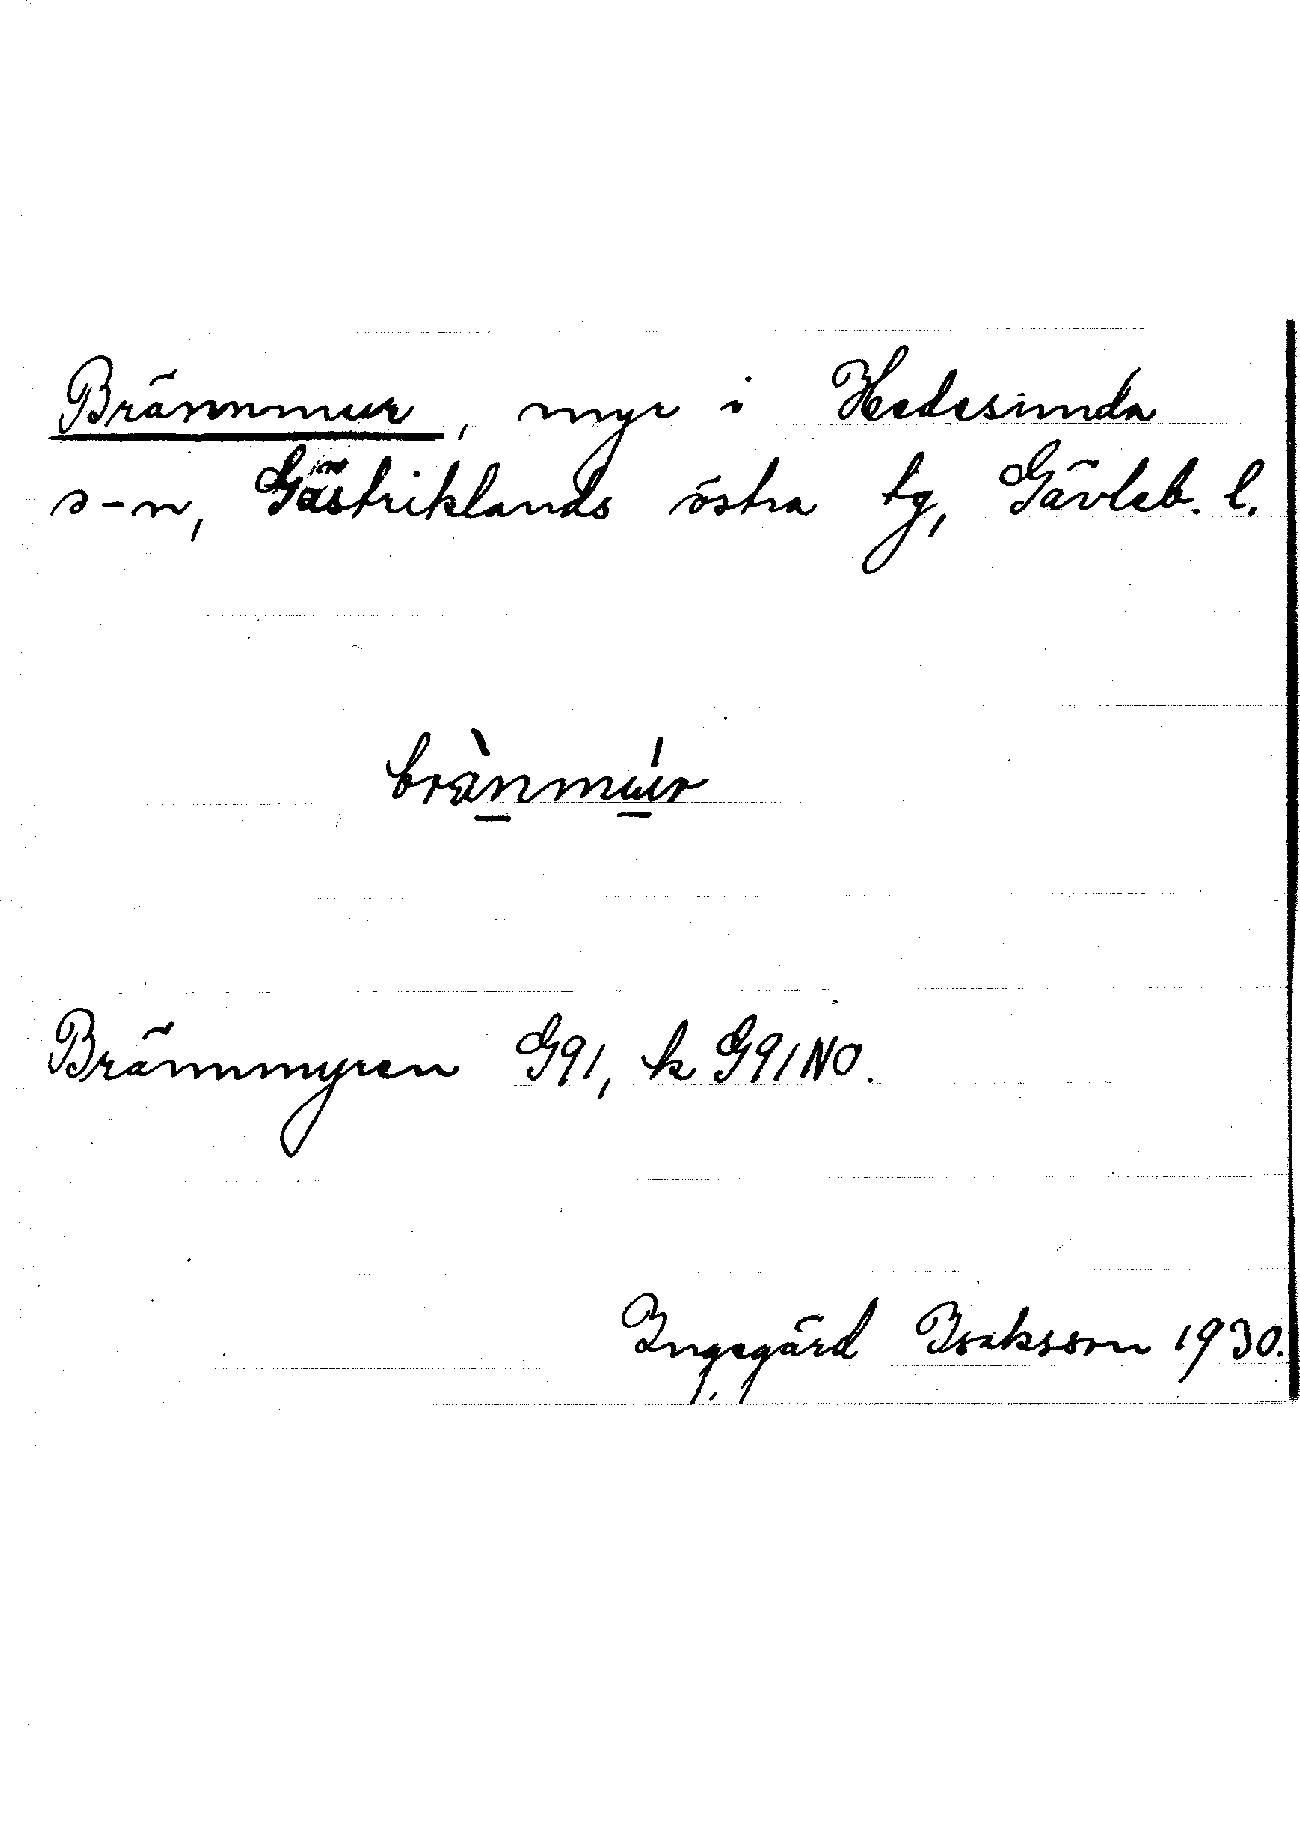 Brännmur, myr i Hedesunda
s-n, Gästriklands östra tg, Gävleb. l.
brä̀nmúr
Brännmyren G91, k G91NO.
Ingegärd Isaksson 1930.